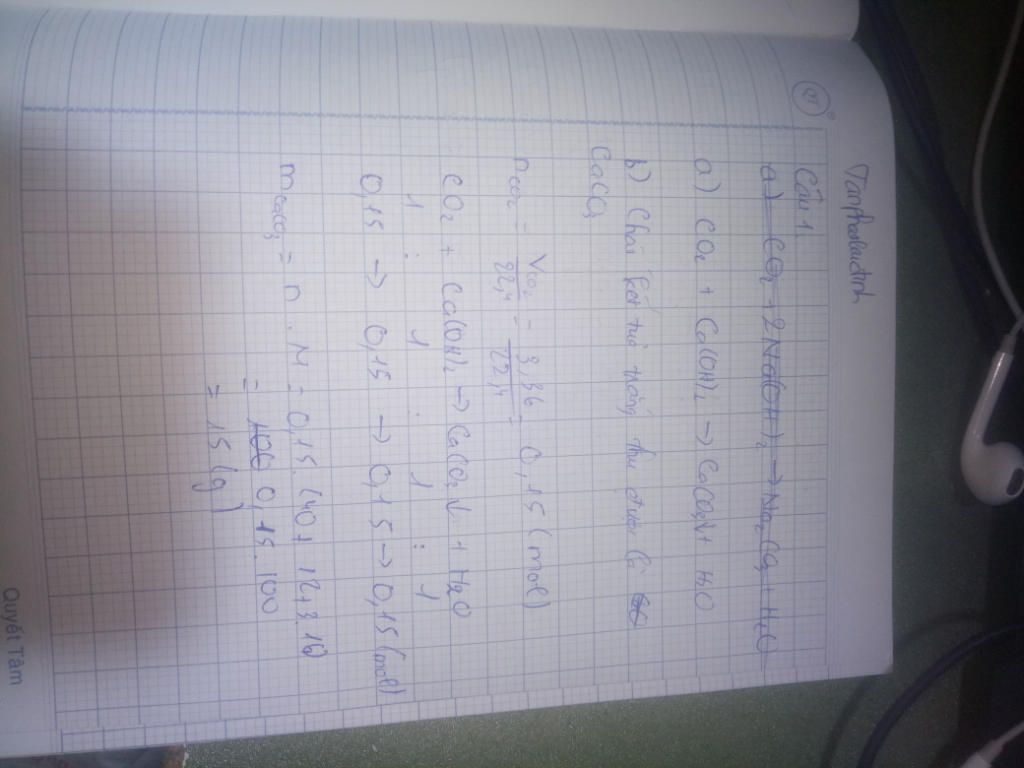 Câu 1.
a) CO2 + 2Na(OH)2 → Na2CO3 + H2O
a) CO2 + Ca(OH)2 → CaCO3↓ + H2O
b) Chất kết tủa trắng thu được là
CaCO3
nCO2 = VCO2/22,4 = 3,36/22,4 = 0,15 (mol)
CO2 + Ca(OH)2 → CaCO3↓ + H2O
1 : 1 : 1 : 1
0,15 → 0,15 → 0,15 → 0,15 (mol)
mCaCO3 = n . M = 0,15. (40 + 12+3.16)
= 0,15. 100
= 15 (g)
Quyết Tâm